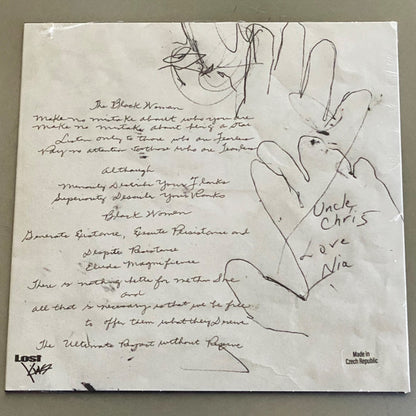 The Black Woman
Make no mistake about who you are
Make no mistake about being a star
Listen only to those who are Fearless
Pay no attention to those who are Fearless
Although
Minority Describes Your
Superiority Describes Your Ranks
Black Women
Generate Existence, Exude Persistence and
Despite Resistance
Exude Magnificence
There is nothing better for
and
all that is necessary is that we be free
to offer them what they Deserve
The Ultimate Respect without Reserve
Uncle
Chris
Love
Nia
Lost
Made in
Czech Republic